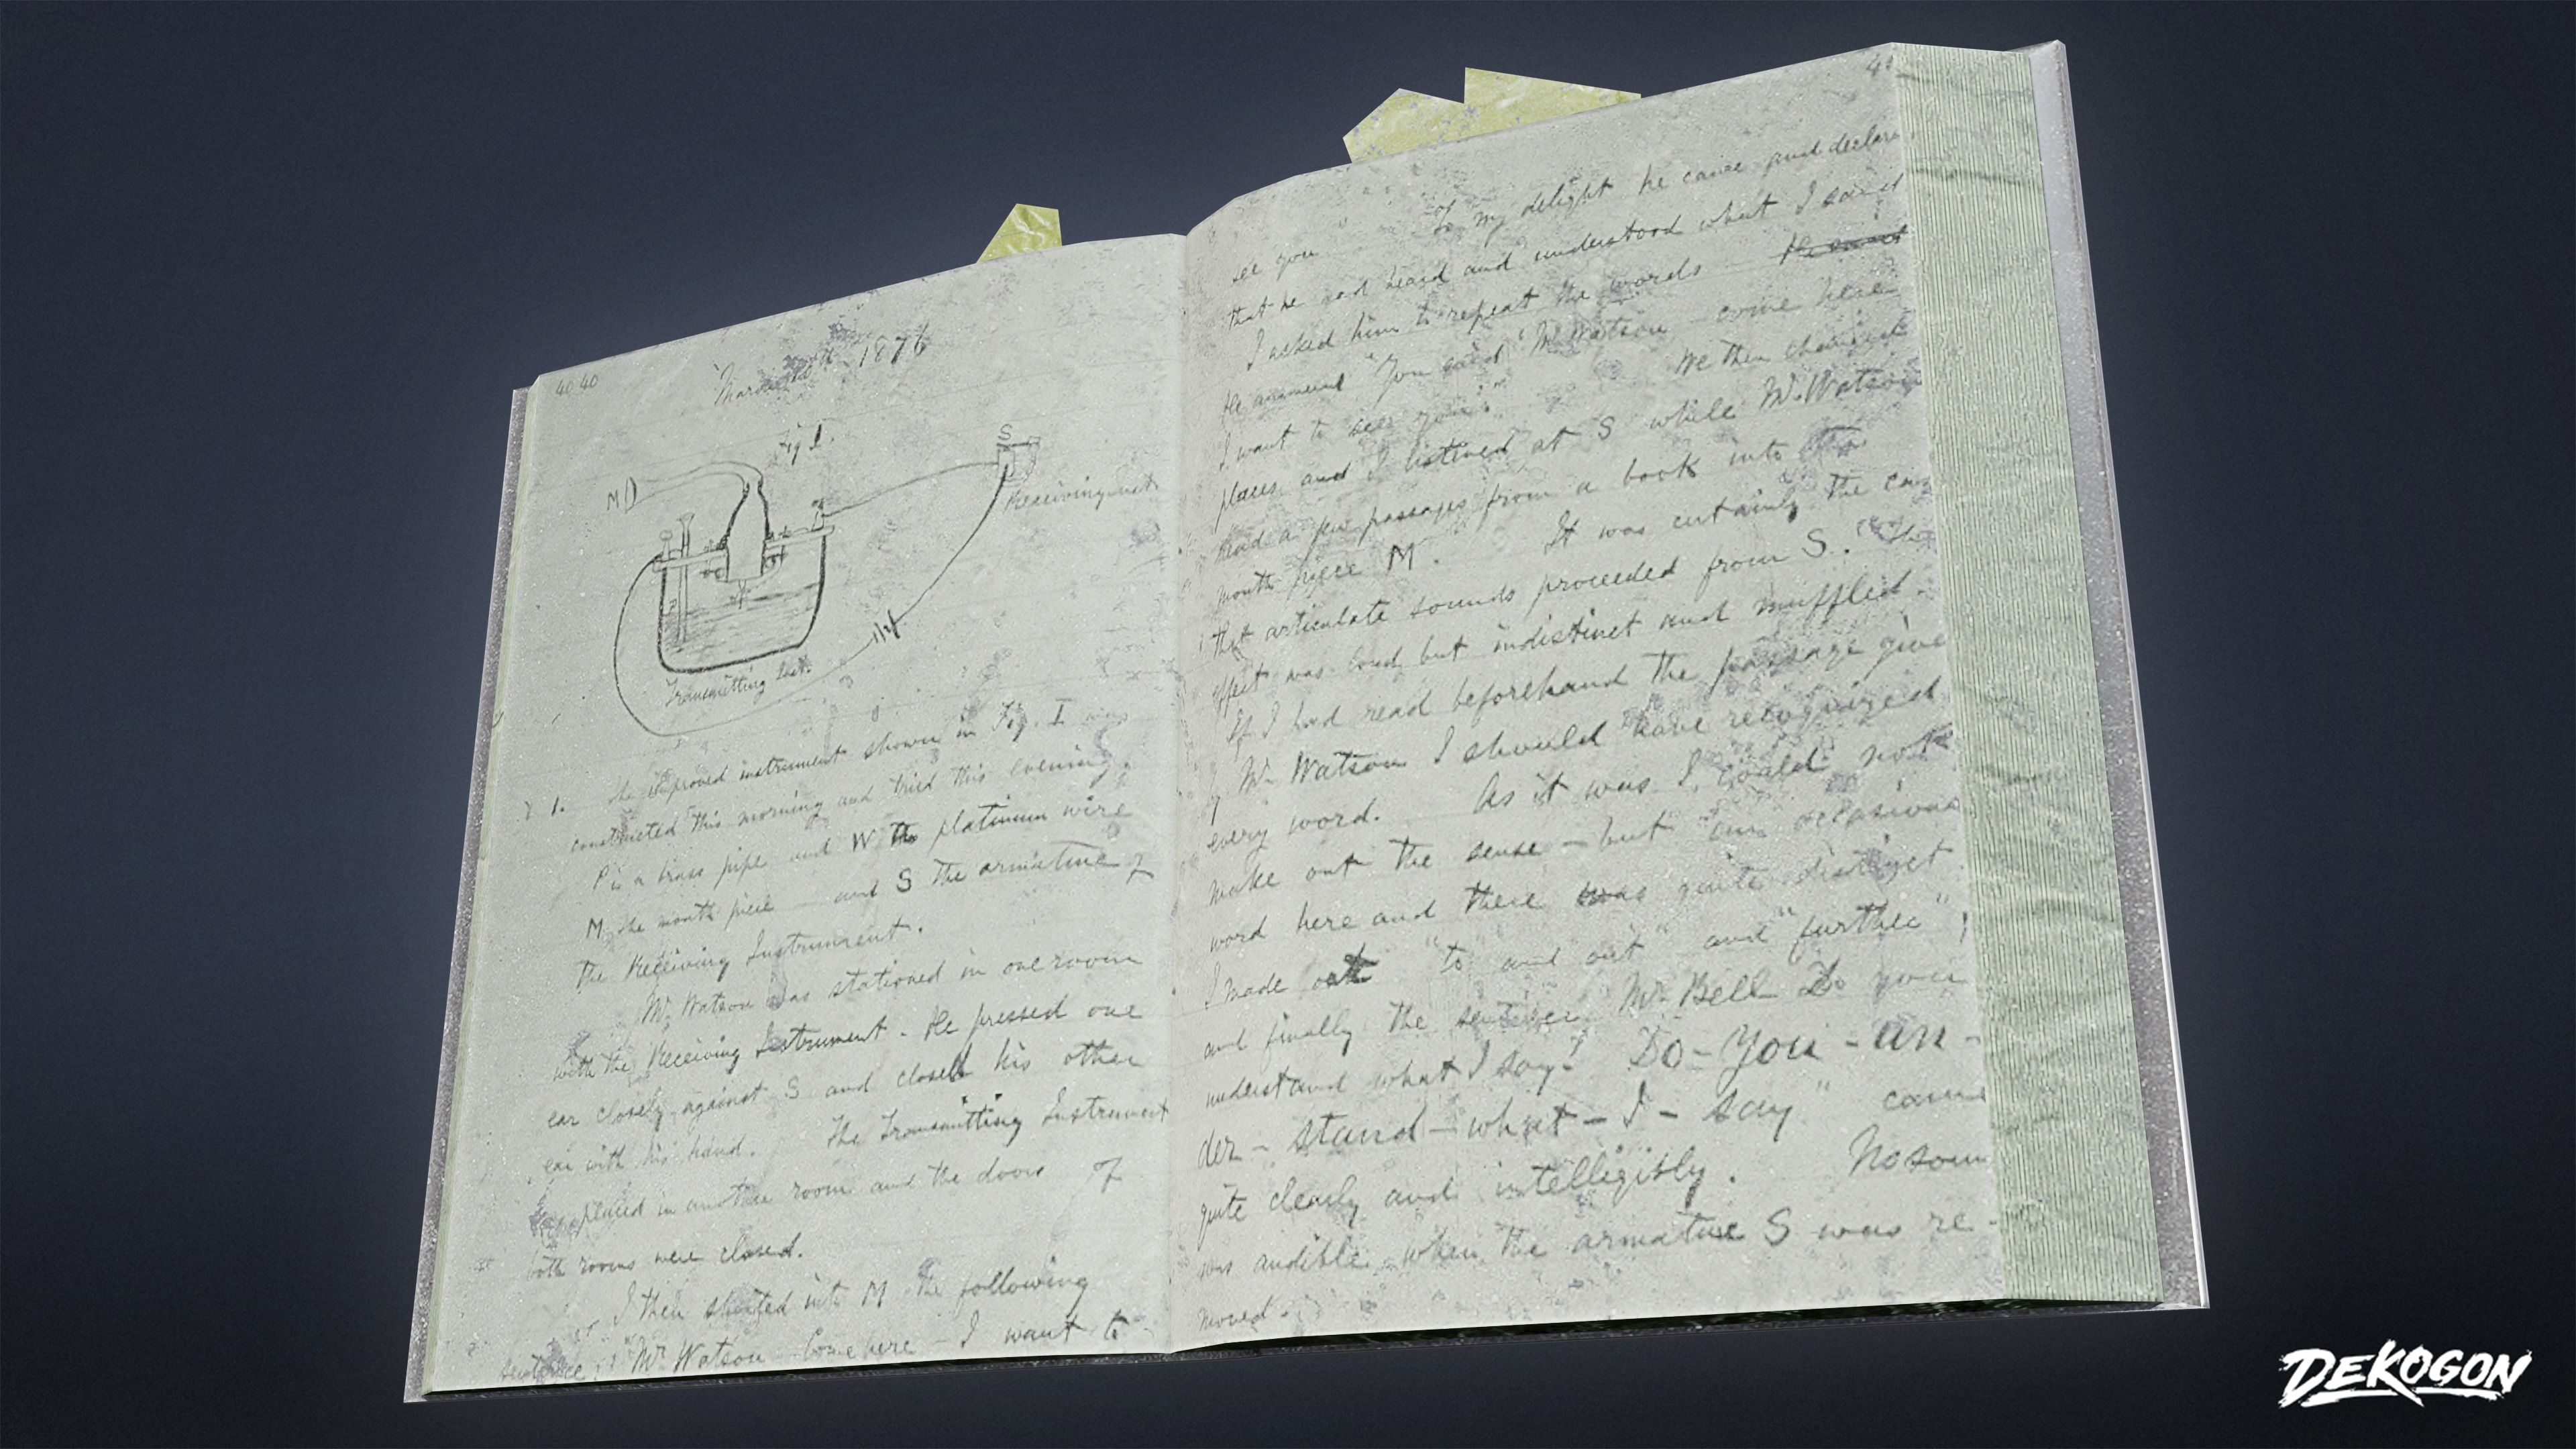 40 40
March 10th 1876
Fig I.
M
S
Receiving inst.
P
W
Transmitting Inst.
1. The improved instrument shown in Fig. I was
constructed this morning and tried this evening.
P is a brass pipe and W the platinum wire
M the mouth piece and S the armature of
the Receiving Instrument.
Mr. Watson was stationed in one room
with the Receiving Instrument. He pressed one
ear closely against S and closed his other
ear with his hand. The Transmitting Instrument
was placed in another room and the doors of
both rooms were closed.
I then shouted into M the following
sentence: "Mr. Watson - Come here - I want to
41
see you". To my delight he came and declared
that he had heard and understood what I said.
I asked him to repeat the words
He answered "You said 'Mr. Watson come here
I want to see you'." We then changed
places and I listened at S while Mr. Watson
read a few passages from a book into the
mouth piece M. It was certainly the case
that articulate sounds proceeded from S. The
effect was loud but indistinct and muffled.
If I had read beforehand the passage given
by Mr. Watson I should have recognized
every word. As it was I could not
make out the sense - but an occasional
word here and there was quite distinct.
I made out "to" and "out" and "further";
and finally the sentence Mr. Bell Do you
understand what I say? Do - you - un -
der - stand - what - I - say" came
quite clearly and intelligibly. No sound
was audible when the armature S was re-
moved.
DEKOGON